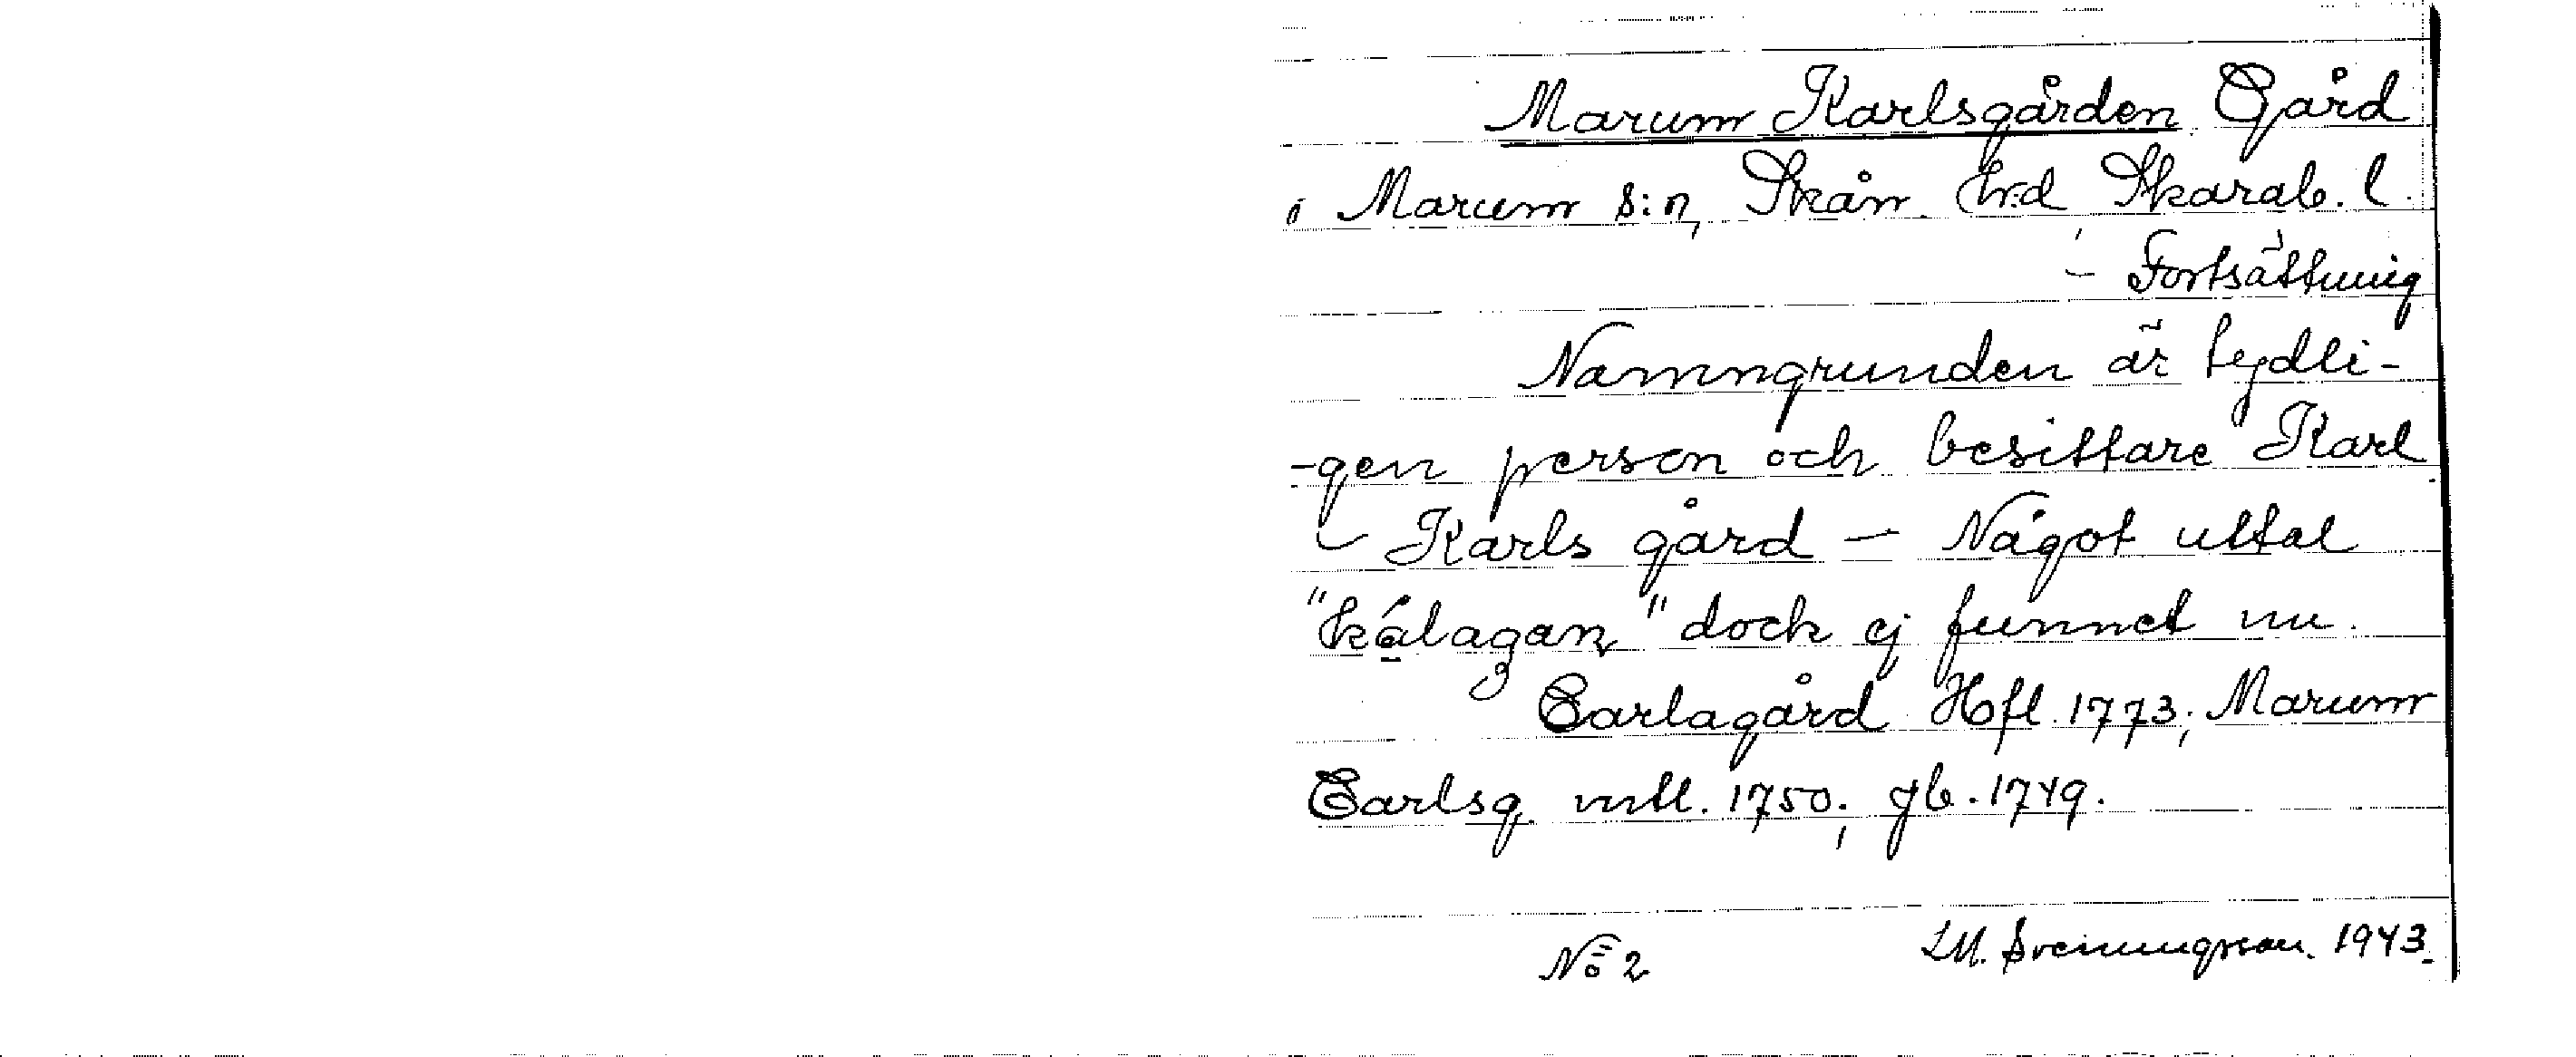 Marum Karlsgården Gård
i Marum s:n, Skån. h:d Skarab. l.
– Fortsättning
Namngrunden är tydli-
-gen person och besittare Karl
– Karls gård – Något uttal
"kálagan" dock ej funnet nu.
Carlagård Hfl. 1773; Marum
Carlsg. mtl. 1750; jb. 1749.
No 2 LM. Svenungsson. 1943.